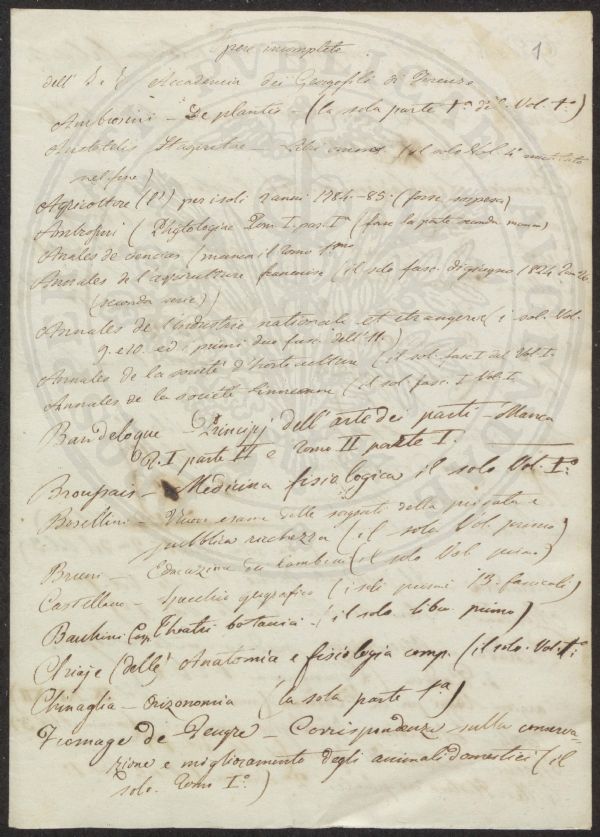 1
pere incomplete
dell' I. e R. Accademia dei Georgofili di Firenze
Ambrosini – De plantis – (la sola parte 1ª del Vol. 1º)
Aristotelis Stagiritae – (il solo Vol. 4º mutilato
nel fine)
Agricoltore (l') per i soli 2 anni 1784–85. (forse sospesa)
Ambrosini (Phytologiae Tom. I. pars. Iª (forse la parte seconda manca)
Anales de ciencias (manca il Tomo 1mo
Annales de l'agriculture francaise (il solo fasc. di giugno 1824
(seconda serie))
Annales de l'industrie nationale et etrangere (i soli Vol.
9. e 10. ed i primi due fasc. dell' 11.)
Annales de la societé d'horticulture (il sol. fasc. I del Vol. I.
Annales de la societé linneenne (il sol. fasc. I Vol. I.
Baudeloque – Principj dell'arte dei parti – Manca
T. I parte II e Tomo II parte I.
Broussais – Medicina fisiologica il solo Vol. Iº
Bosellini – Nuovo esame delle sorgenti della privata e
pubblica ricchezza (il solo Vol. primo)
Bruni – Educazione dei bambini (il solo Vol. primo)
Castellano – Specchio geografico (i soli primi 13. fascicoli)
Bauhini Casp. Theatri botanici – (il solo libro primo)
Chiaje (delle) Anatomia e fisiologia comp. (il solo Vol. 1º:
Chinaglia – Orizonomia (la sola parte 1ª)
Fromage de Feugre – Corrispondenza sulla conserva-
zione e miglioramento degli animali domestici (il
solo Tomo Iº)